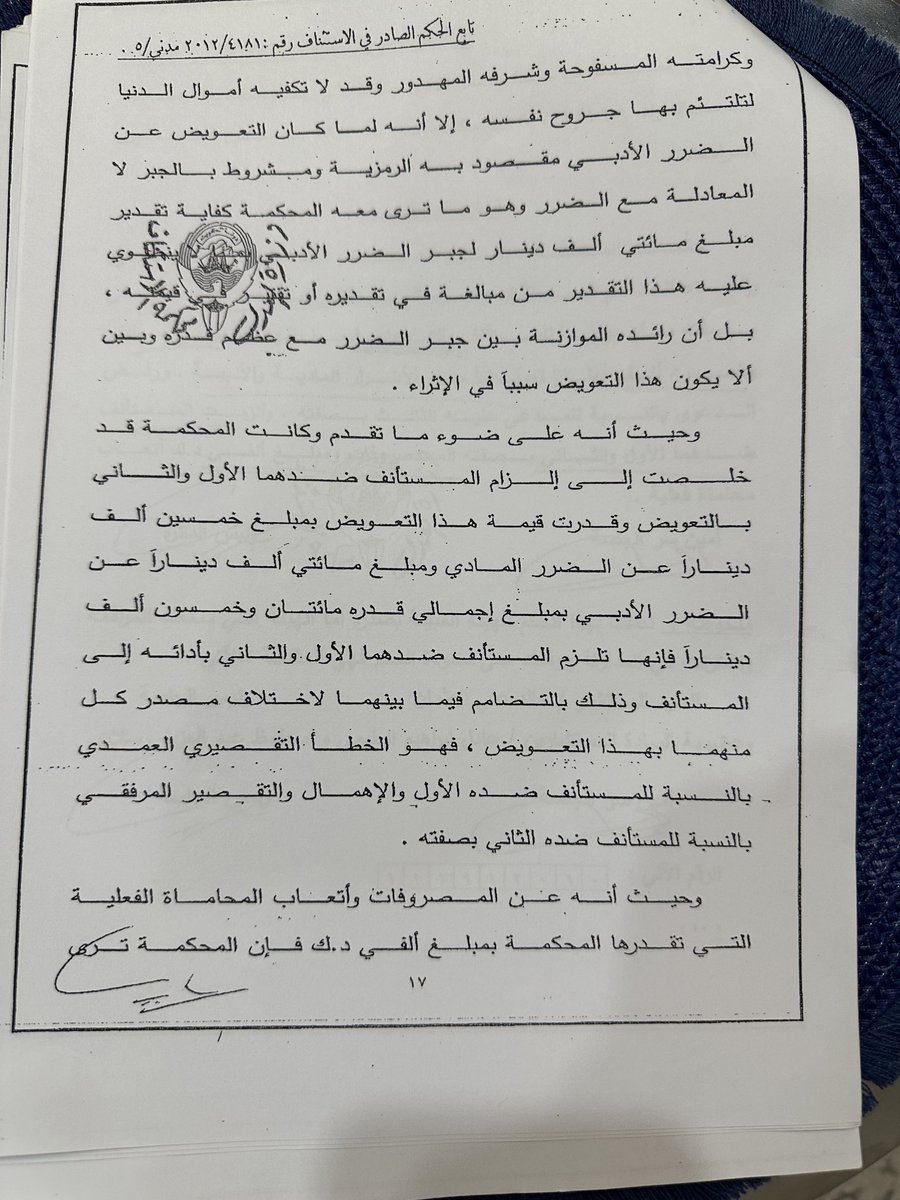 تابع الحكم الصادر في الاستئناف رقم : ٢٠١٢/٤١٨١ مدني/٥ .
وكرامته المسفوحة وشرفه المهدور وقد لا تكفيه أموال الدنيا
لتلتئم بها جروح نفسه ، إلا أنه لما كان التعويض عن
الضرر الأدبي مقصود به الرمزية ومشروط بالجبر لا
المعادلة مع الضرر وهو ما ترى معه المحكمة كفاية تقدير
مبلغ مائتي ألف دينار لجبر الضرر الأدبي ينطوي
عليه هذا التقدير من مبالغة في تقديره أو تقتير في قيمته ،
بل أن رائده الموازنة بين جبر الضرر مع عظم قدره وبين
ألا يكون هذا التعويض سبباً في الإثراء .
وحيث أنه على ضوء ما تقدم وكانت المحكمة قد
خلصت إلى إلزام المستأنف ضدهما الأول والثاني
بالتعويض وقدرت قيمة هذا التعويض بمبلغ خمسين ألف
ديناراً عن الضرر المادي ومبلغ مائتي ألف ديناراً عن
الضرر الأدبي بمبلغ إجمالي قدره مائتان وخمسون ألف
ديناراً فإنها تلزم المستأنف ضدهما الأول والثاني بأدائه إلى
المستأنف وذلك بالتضامم فيما بينهما لاختلاف مصدر كل
منهما بهذا التعويض ، فهو الخطأ التقصيري العمدي
بالنسبة للمستأنف ضده الأول والإهمال والتقصير المرفقي
بالنسبة للمستأنف ضده الثاني بصفته .
وحيث أنه عن المصروفات وأتعاب المحاماة الفعلية
التي تقدرها المحكمة بمبلغ ألفي د.ك فإن المحكمة ترى
١٧